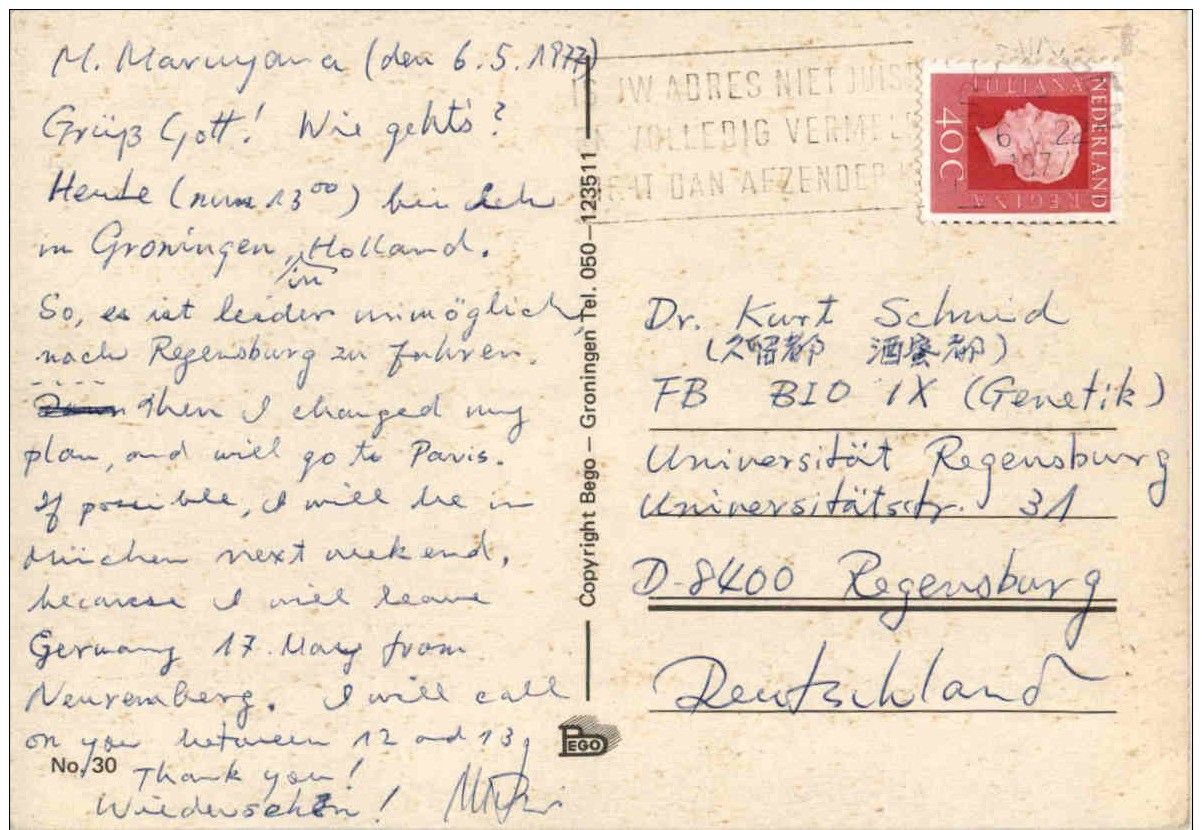 M. Maruyama (den 6. 5. 1977)
Grüß Gott! Wie gehts?
Heute (nun 13⁰⁰) bin ich
in Groningen, in Holland.
So, es ist leider unmöglich
nach Regensburg zu fahren.
Then I changed my
plan, and will go to Paris.
If possible, I will be in
München next weekend,
because I will leave
Germany 17. May from
Neuremberg. I will call
on you between 12 and 13,
Thank you!
Wiedersehen!
No. 30
Copyright Bego – Groningen Tel. 050–123511
BEGO
UW ADRES NIET JUIS
VOLLEDIG VERMEL
DAN AFZENDER
NEDERLAND
JULIANA REGINA
40C
6
22
197
Dr. Kurt Schmid
(久留都 酒蜜都)
FB BIO IX (Genetik)
Universität Regensburg
Universitätsstr. 31
D-8400 Regensburg
Deutschland